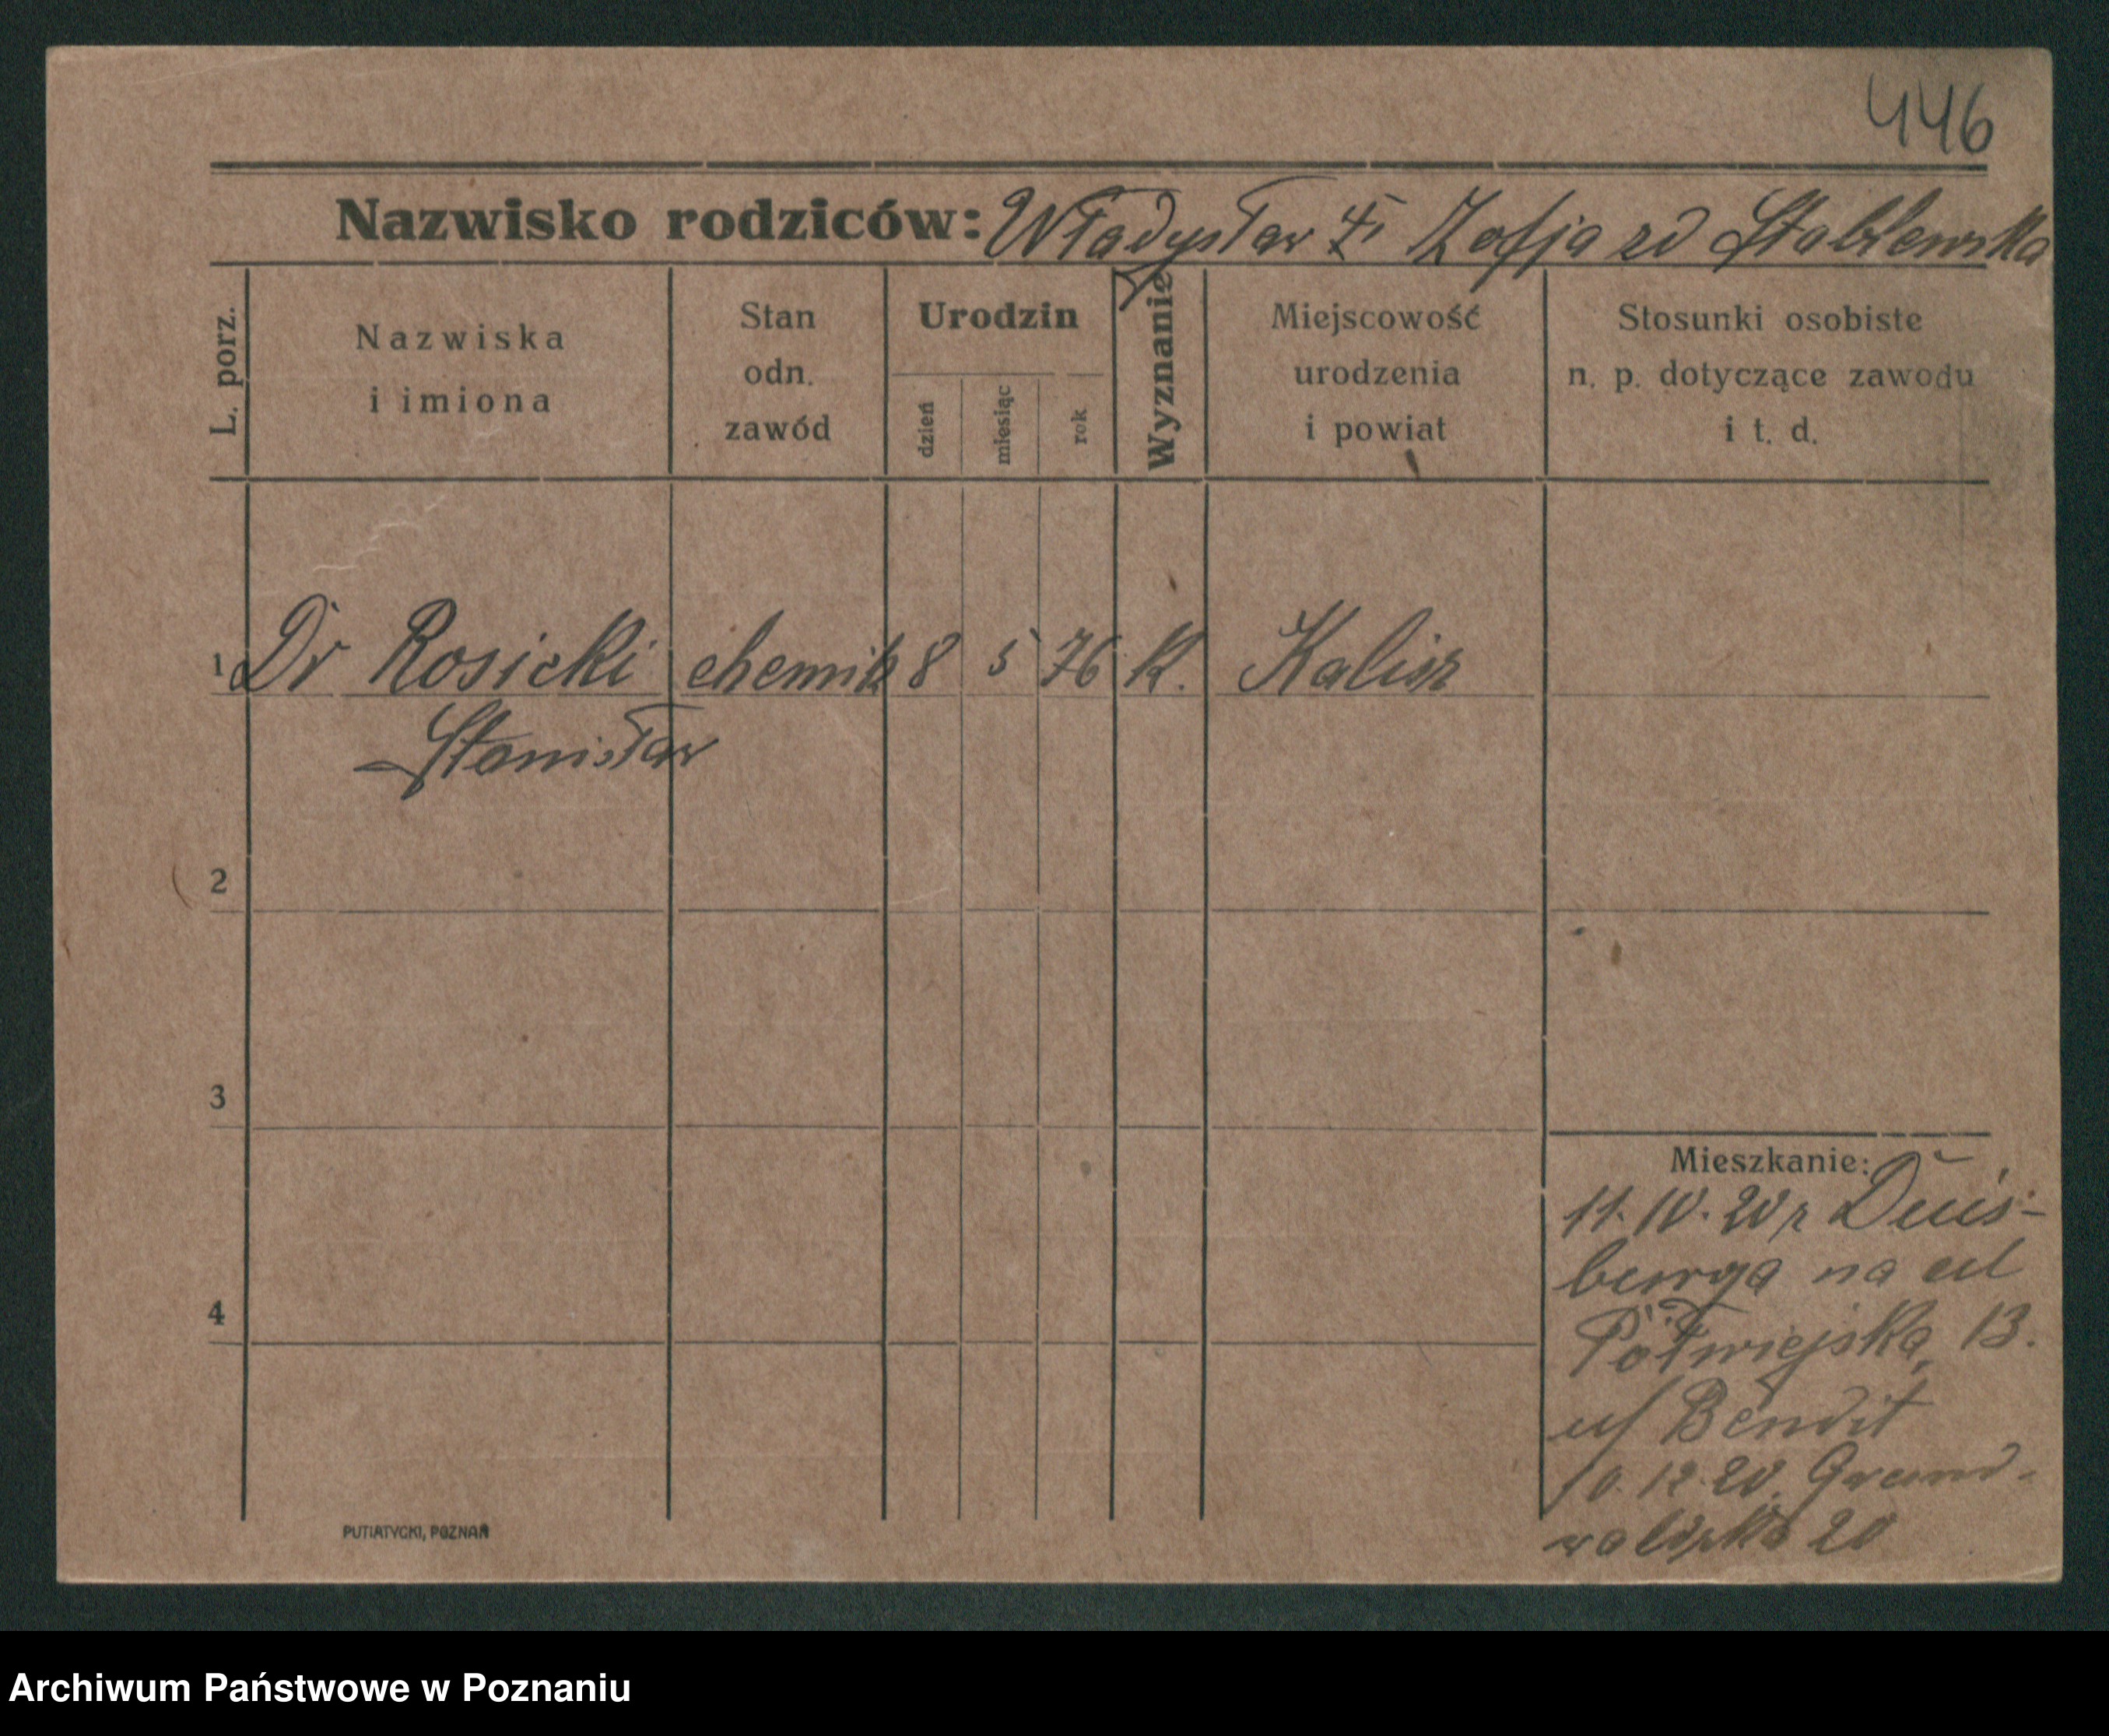 446
Nazwisko rodziców: Władysław i Zofja zd Stablewska
L. porz.
Nazwiska
i imiona
Stan
odn.
zawód
Urodzin
dzień
miesiąc
rok
Wyznanie
Miejscowość
urodzenia
i powiat
Stosunki osobiste
n. p. dotyczące zawodu
i t. d.
1 Dr Rosicki chemik 8 5 76 K. Kalisz
Stanisław
2
3
4
Mieszkanie:
11. 10. 20 z Duis-
burga na ul
Półwiejską 13.
u/ Bendit
10. 12. 20. Grund-
waldzka 20
PUTIATYCKI, POZNAŃ
Archiwum Państwowe w Poznaniu